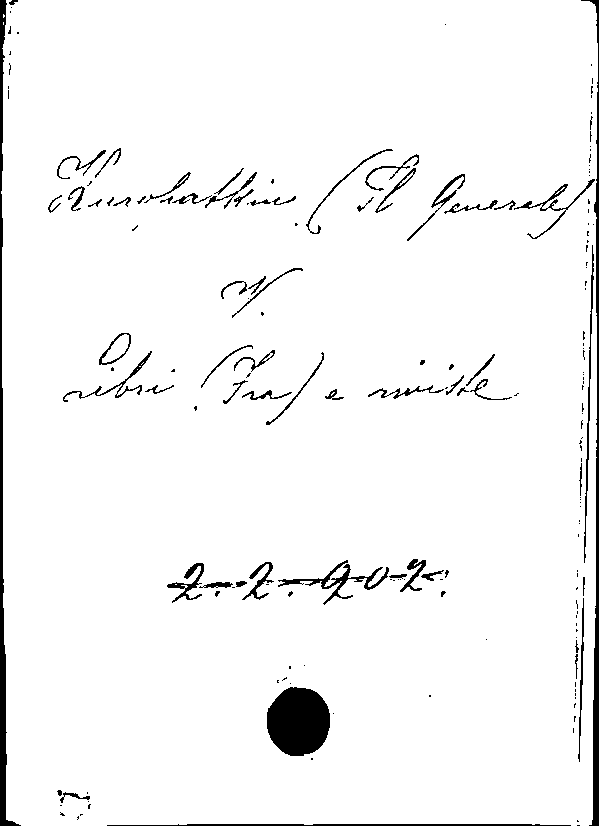 Kuropatkin (Il Generale)
V.
Libri (Fra) e riviste
2.2.902.